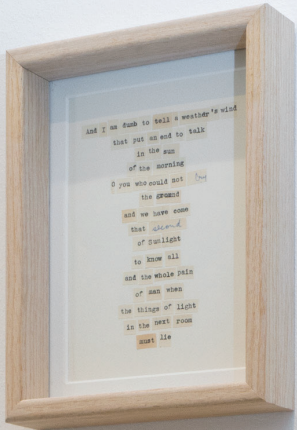 And I am dumb to tell a weather's wind
that put an end to talk
in the sun
of the morning
O you who could not
the ground
and we have come
that second
of Sunlight
to know all
and the whole pain
of man when
the things of light
in the next room
must lie